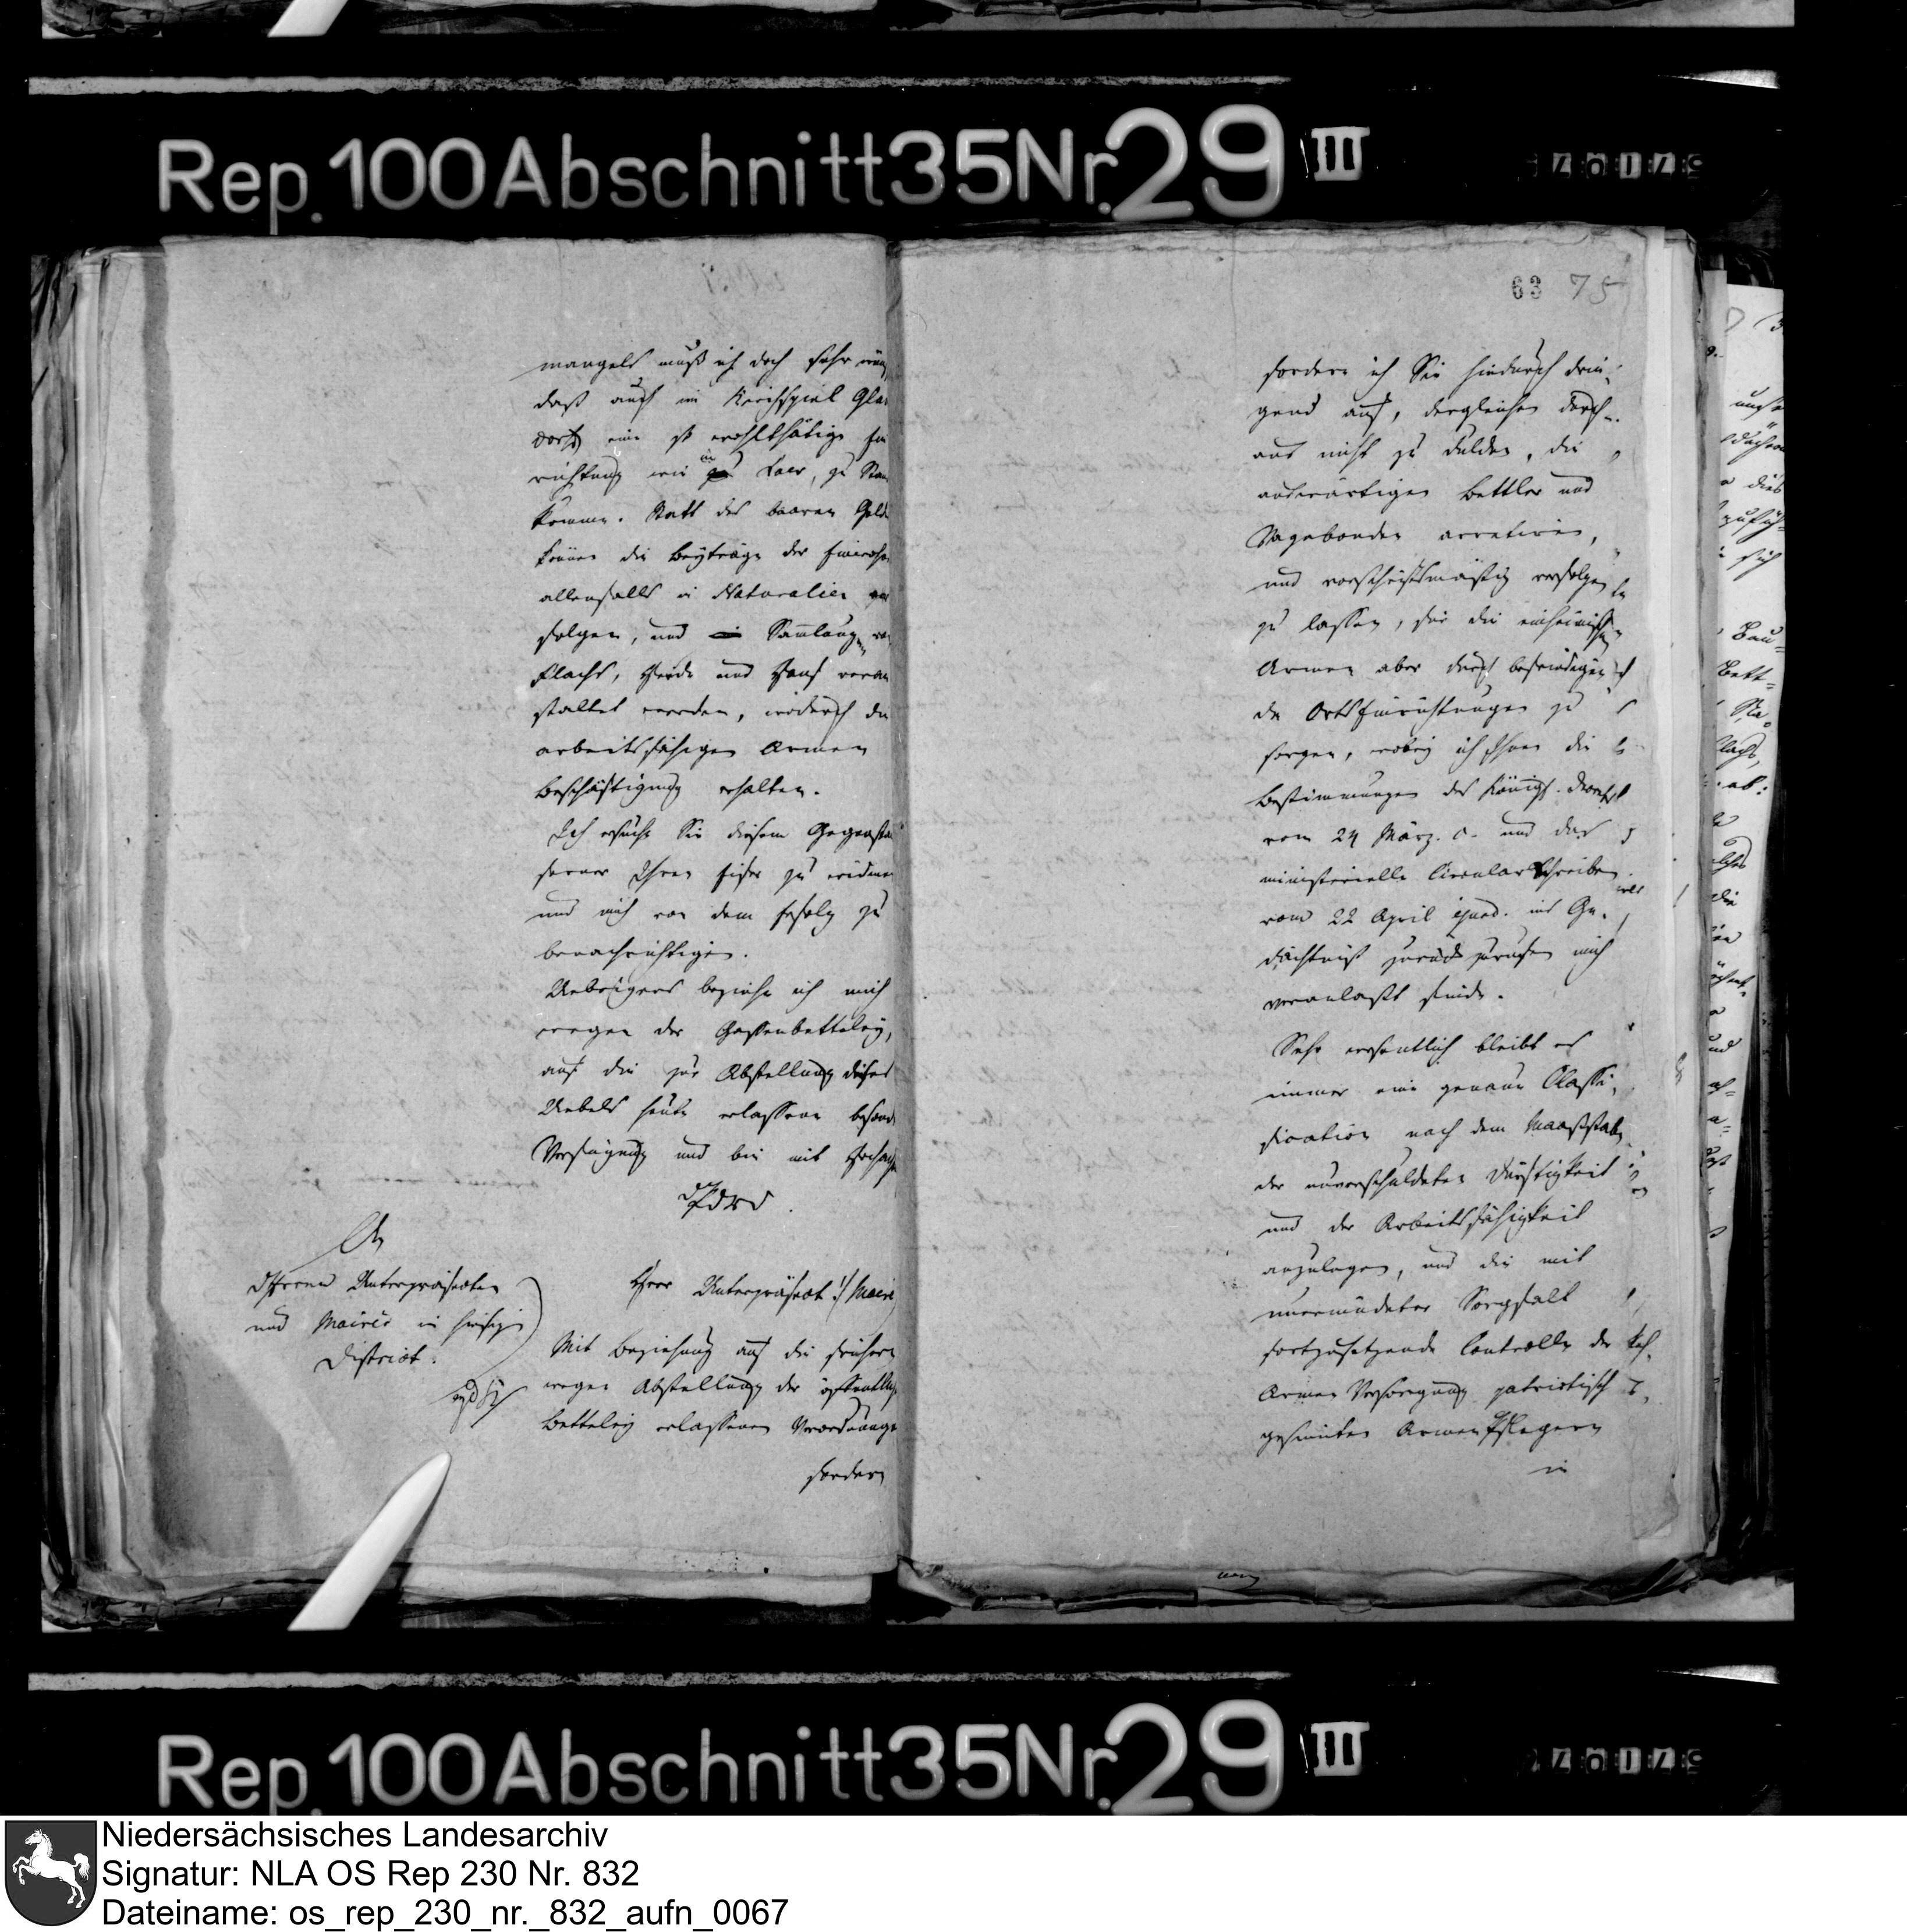 Rep. 100 Abschnitt 35 Nr. 29 III
mangels muß ich doch sehr
daß auch im Kirchspiel Gla
dorf eine so wohlthätige Ein
richtung wie in Laer, zu Stan
komme. Statt des baaren Geldes
können die Beyträge der Einwohn
allenfalls in Naturalien er
folgen, und Samlungen vo
Flachs, Heede und Hanf veran
staltet werden, wodurch die
arbeitsfähigen Armen
Beschäftigung erhalten.
Ich ersuche Sie diesem Gegenstan
ferner Ihren Eifer zu widmen
und mich von dem Erfolg zu
benachrichtigen.
Uebrigens beziehe ich mich
wegen der Gassenbetteley,
auf die zur Abstellung dieses
Uebels heute erlassene besond
Verfügung und bin mit Hochach
An
Herren Unterpräfecten
und Mairie in hiesigen
District.
Herr Unterpräfect :/ Maire
Mit Beziehung auf die frühern
wegen Abstellung der öffentlich
Betteley erlassenen Verordnunge
fordern
63 75
fordere ich Sie hiedurch drin-
gend auf, dergleichen durch-
aus nicht zu dulden, die
auswärtigen Bettler und
Vagabonden arretiren,
und vorschriftsmäßig verfolgen
zu lassen, für die einheimischen
Armen aber durch befriedigen
de Ortseinrichtungen zu
sorgen, wobey ich Ihnen die
Bestimmungen des Königl. Decrets
vom 24 März. c. und das
ministerielle Circularschreiben
vom 22 April ejusd. ins Ge-
dächtniß zurück zurufen mich
veranlaßt finde.
Sehr wesentlich bleibt es
immer eine genaue Classi-
fication nach dem Maaßstabe
der unverschuldeten Dürftigkeit
und der Arbeitsfähigkeit
anzulegen, und die mit
unermüdeter Sorgfalt
fortzusetzende Controlle der
Armen Versorgung patriotisch
gesinnten Armenpflegern
in
Rep. 100 Abschnitt 35 Nr. 29 III
Niedersächsisches Landesarchiv
Signatur: NLA OS Rep 230 Nr. 832
Dateiname: os_rep_230_nr._832_aufn_0067